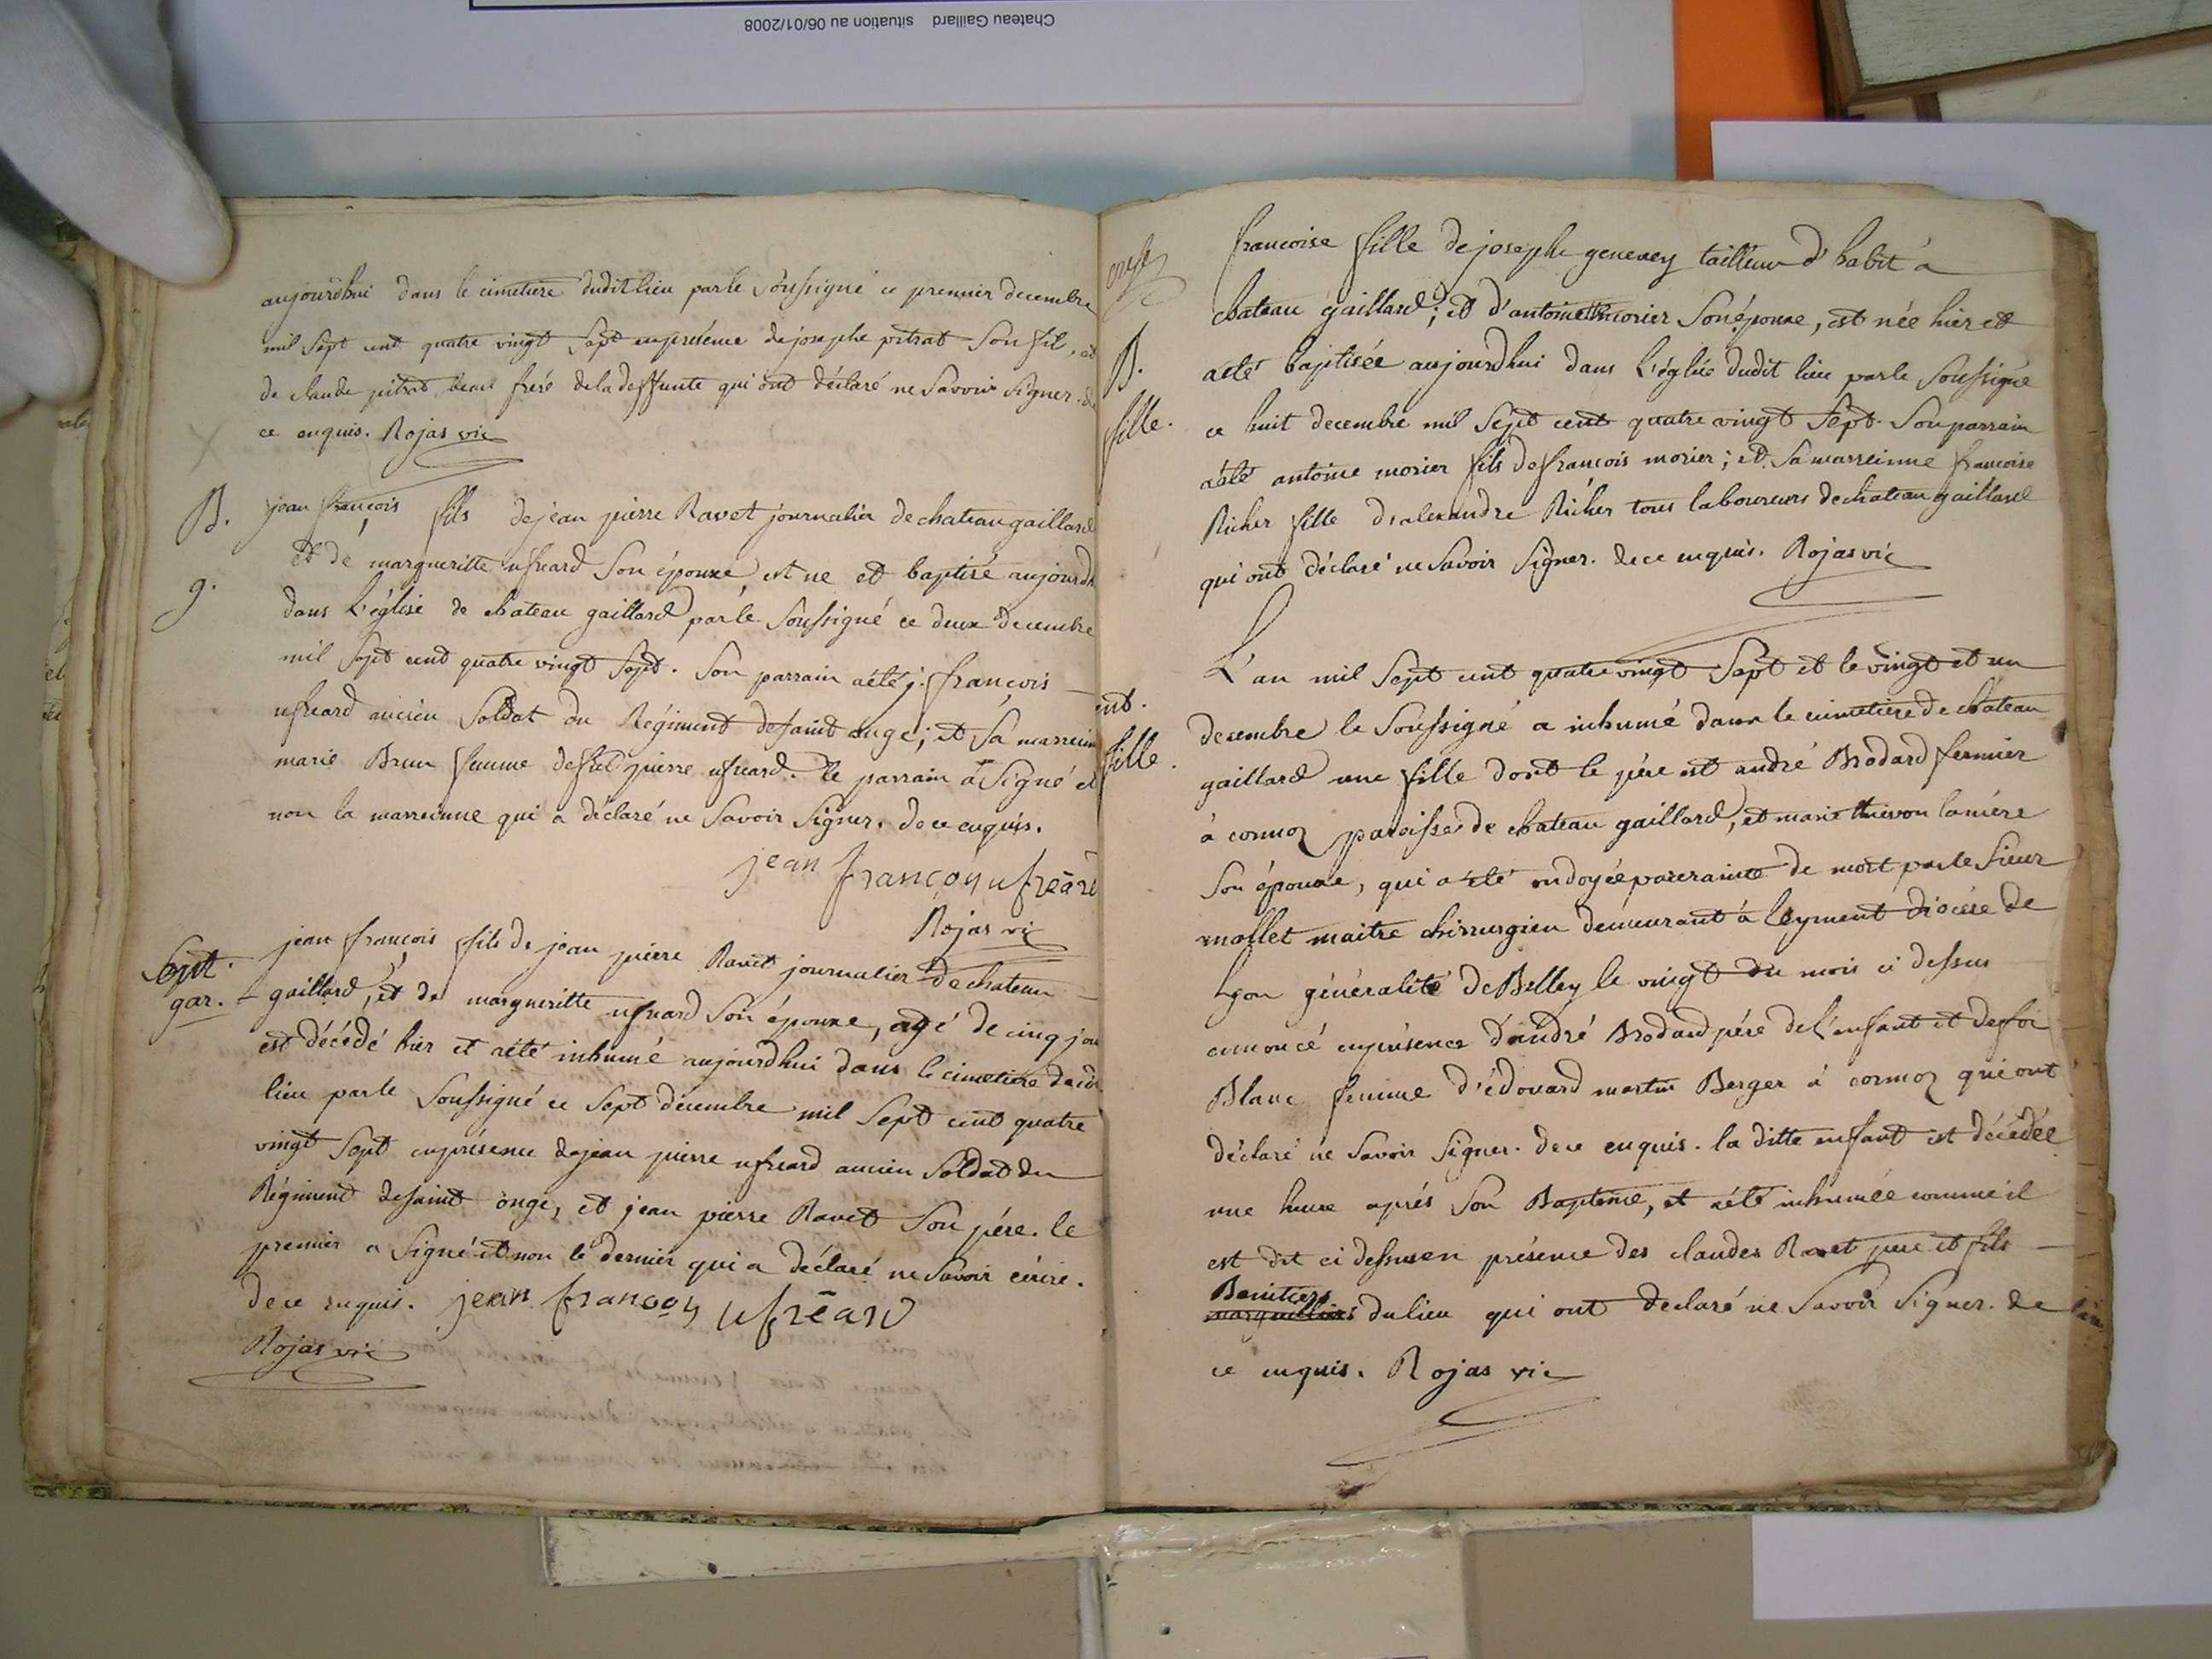 Chateau Gaillard situation au 06/01/2008
aujourdhui dans le cimetiere dudit lieu par le soussigné ce premier decembre
mil sept cent quatre vingt sept en présence de josephe pitrat son fil, et
de claude pitrat beau freré de la deffunte qui ont déclaré ne savoir signer. de
ce enquis. Rojas vic
B.
g.
jean françois fils de jean pierre Ravet journalier de chateau gaillard
et de margueritte ufreard son épouse, est ne et baptisé aujourdh
dans l'église de chateau gaillard par le soussigné ce deux decembre
mil sept cent quatre vingt sept. son parrain a été j. françois
ufreard ancien soldat du Régiment de saint onge; et sa marrein
marie Brun femme de feu pierre ufreard. le parrain a signé et
non la marreinne qui a déclaré ne savoir signer. de ce enquis.
jean françoy ufreard
Rojas vic
Sept.
gar.
jean françois fils de jean pierre Ravet journalier de chateau
gaillard, et de margueritte ufreard son épouse, agé de cinq jou
est décédé hier et a été inhumé aujourdhui dans le cimetiere dudt
lieu par le soussigné ce sept decembre mil sept cent quatre
vingt sept en présence de jean pierre ufreard ancien soldat du
Régiment de saint onge, et jean pierre Ravet son pére. le
premier a signé et non le dernier qui a déclaré ne savoir ecrire.
de ce enquis. jean françoy ufreard
Rojas vic
B.
fille.
francoise fille de josephe genevey tailleur d'habit à
chateau gaillard; et d'antoinette morier son épouse, est née hier et
a été baptisée aujourdhui dans l'église dudit lieu par le soussigné
ce huit decembre mil sept cent quatre vingt sept. son parrain
a été antoine morier fils de françois morier; et sa marreinne francoise
Richer fille d'alexandre Richer tous laboureurs de chateau gaillard
qui ont déclaré ne savoir signer. de ce enquis. Rojas vic
ent.
fille.
L'an mil sept cent quatre vingt sept et le vingt et un
decembre le soussigné a inhumé dans le cimetiere de chateau
gaillard une fille dont le pére est andré Brodard fermier
à cormoz paroisse de chateau gaillard, et marie thevon la mére
son épouse, qui a été ondoyée par crainte de mort par le sieur
mollet maitre chirurgien demeurant à leyment diocése de
lyon généralité de Belley le vingt du mois ci dessus
ennoncé en présence d'andré Brodard pére de l'enfant et de
Blanc femme d'édouard martin Berger à cormoz qui ont
déclaré ne savoir signer. de ce enquis. la ditte enfant est décédée
une heure aprés son Baptême, et a été inhumée comme il
est dit ci dessus en présence des claudes Ravet pere et fils
Benitiers
marguilliers du lieu qui ont declaré ne savoir signer. de
ce enquis. Rojas vic